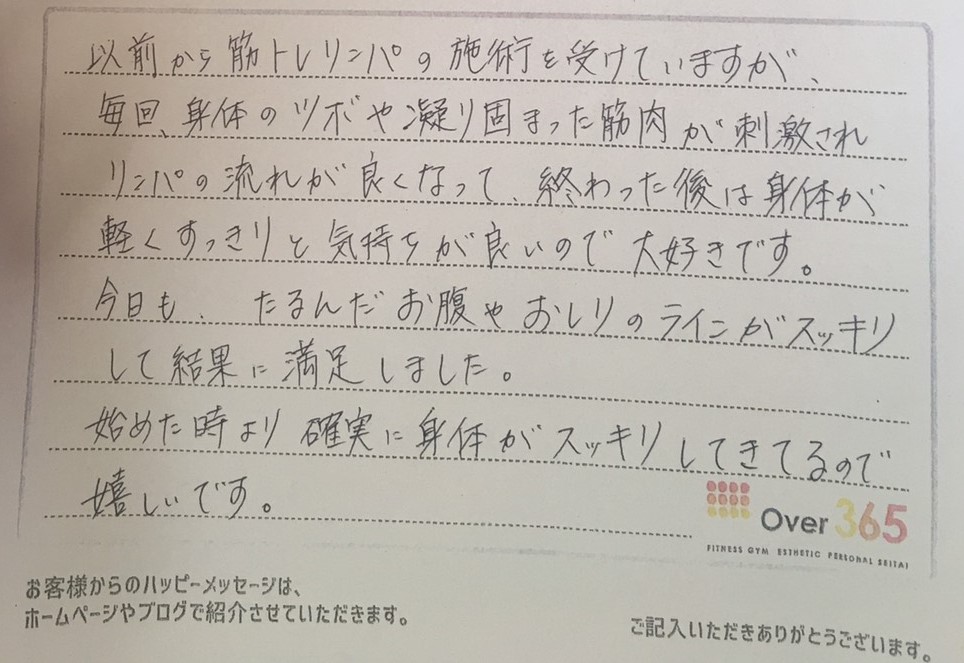 以前から筋トレリンパの施術を受けていますが、
毎回、身体のツボや凝り固まった筋肉が刺激され
リンパの流れが良くなって、終わった後は身体が
軽くすっきりと気持ちが良いので大好きです。
今日も、たるんだお腹やおしりのラインがスッキリ
して結果に満足しました。
始めた時より確実に身体がスッキリしてきてるので
嬉しいです。
Over 365
FITNESS GYM ESTHETIC PERSONAL SEITAI
お客様からのハッピーメッセージは、
ホームページやブログで紹介させていただきます。
ご記入いただきありがとうございます。